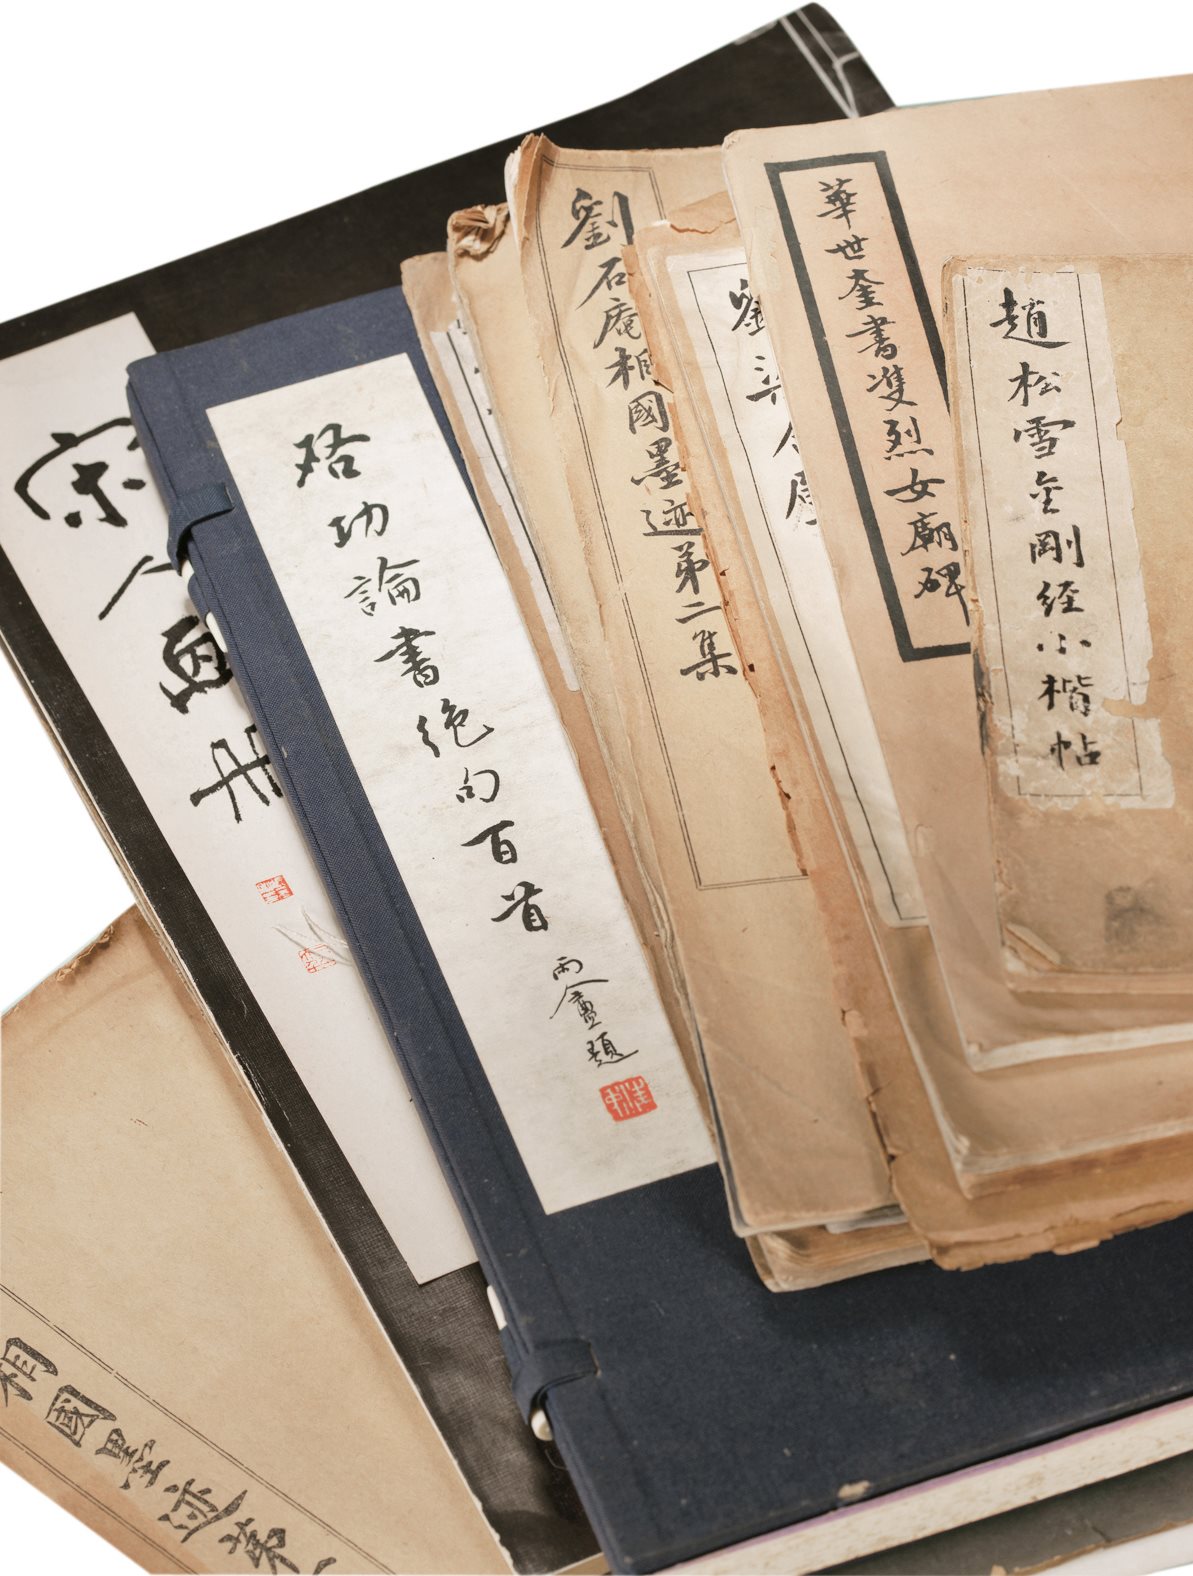 趙松雪金剛經小楷帖
華世奎書雙烈女廟碑
劉石庵相國墨迹第二集
启功論書絶句百首
雨盦題
宋人画册
相國墨迹第